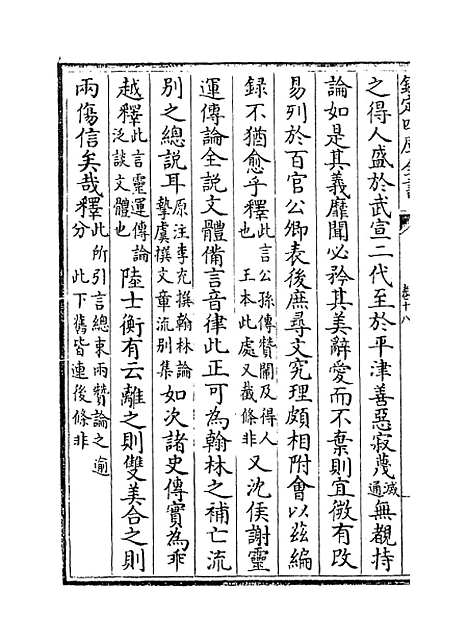 欽定四庫全書
卷十八
之得人盛於武宣二代至於平津善惡寂蔑滅通無覩持
論如是其義靡聞必矜其美辭愛而不棄則宜微有改
易列於百官公卿表後庶尋文究理頗相附會以兹編
録不猶愈乎釋此言公孫傳贊闌及得人也王本此處又截條非又沈侯謝靈
運傳論全説文體備言音律此正可為翰林之補亡流
別之總説耳原注李充撰翰林論摯虞撰文章流别集如次諸史傳實為乖
越釋此言靈運傳論泛談文體也陸士衡有云離之則雙美合之則
兩傷信矣哉釋此所引言總束兩贊論之逾分此下舊皆連後條非